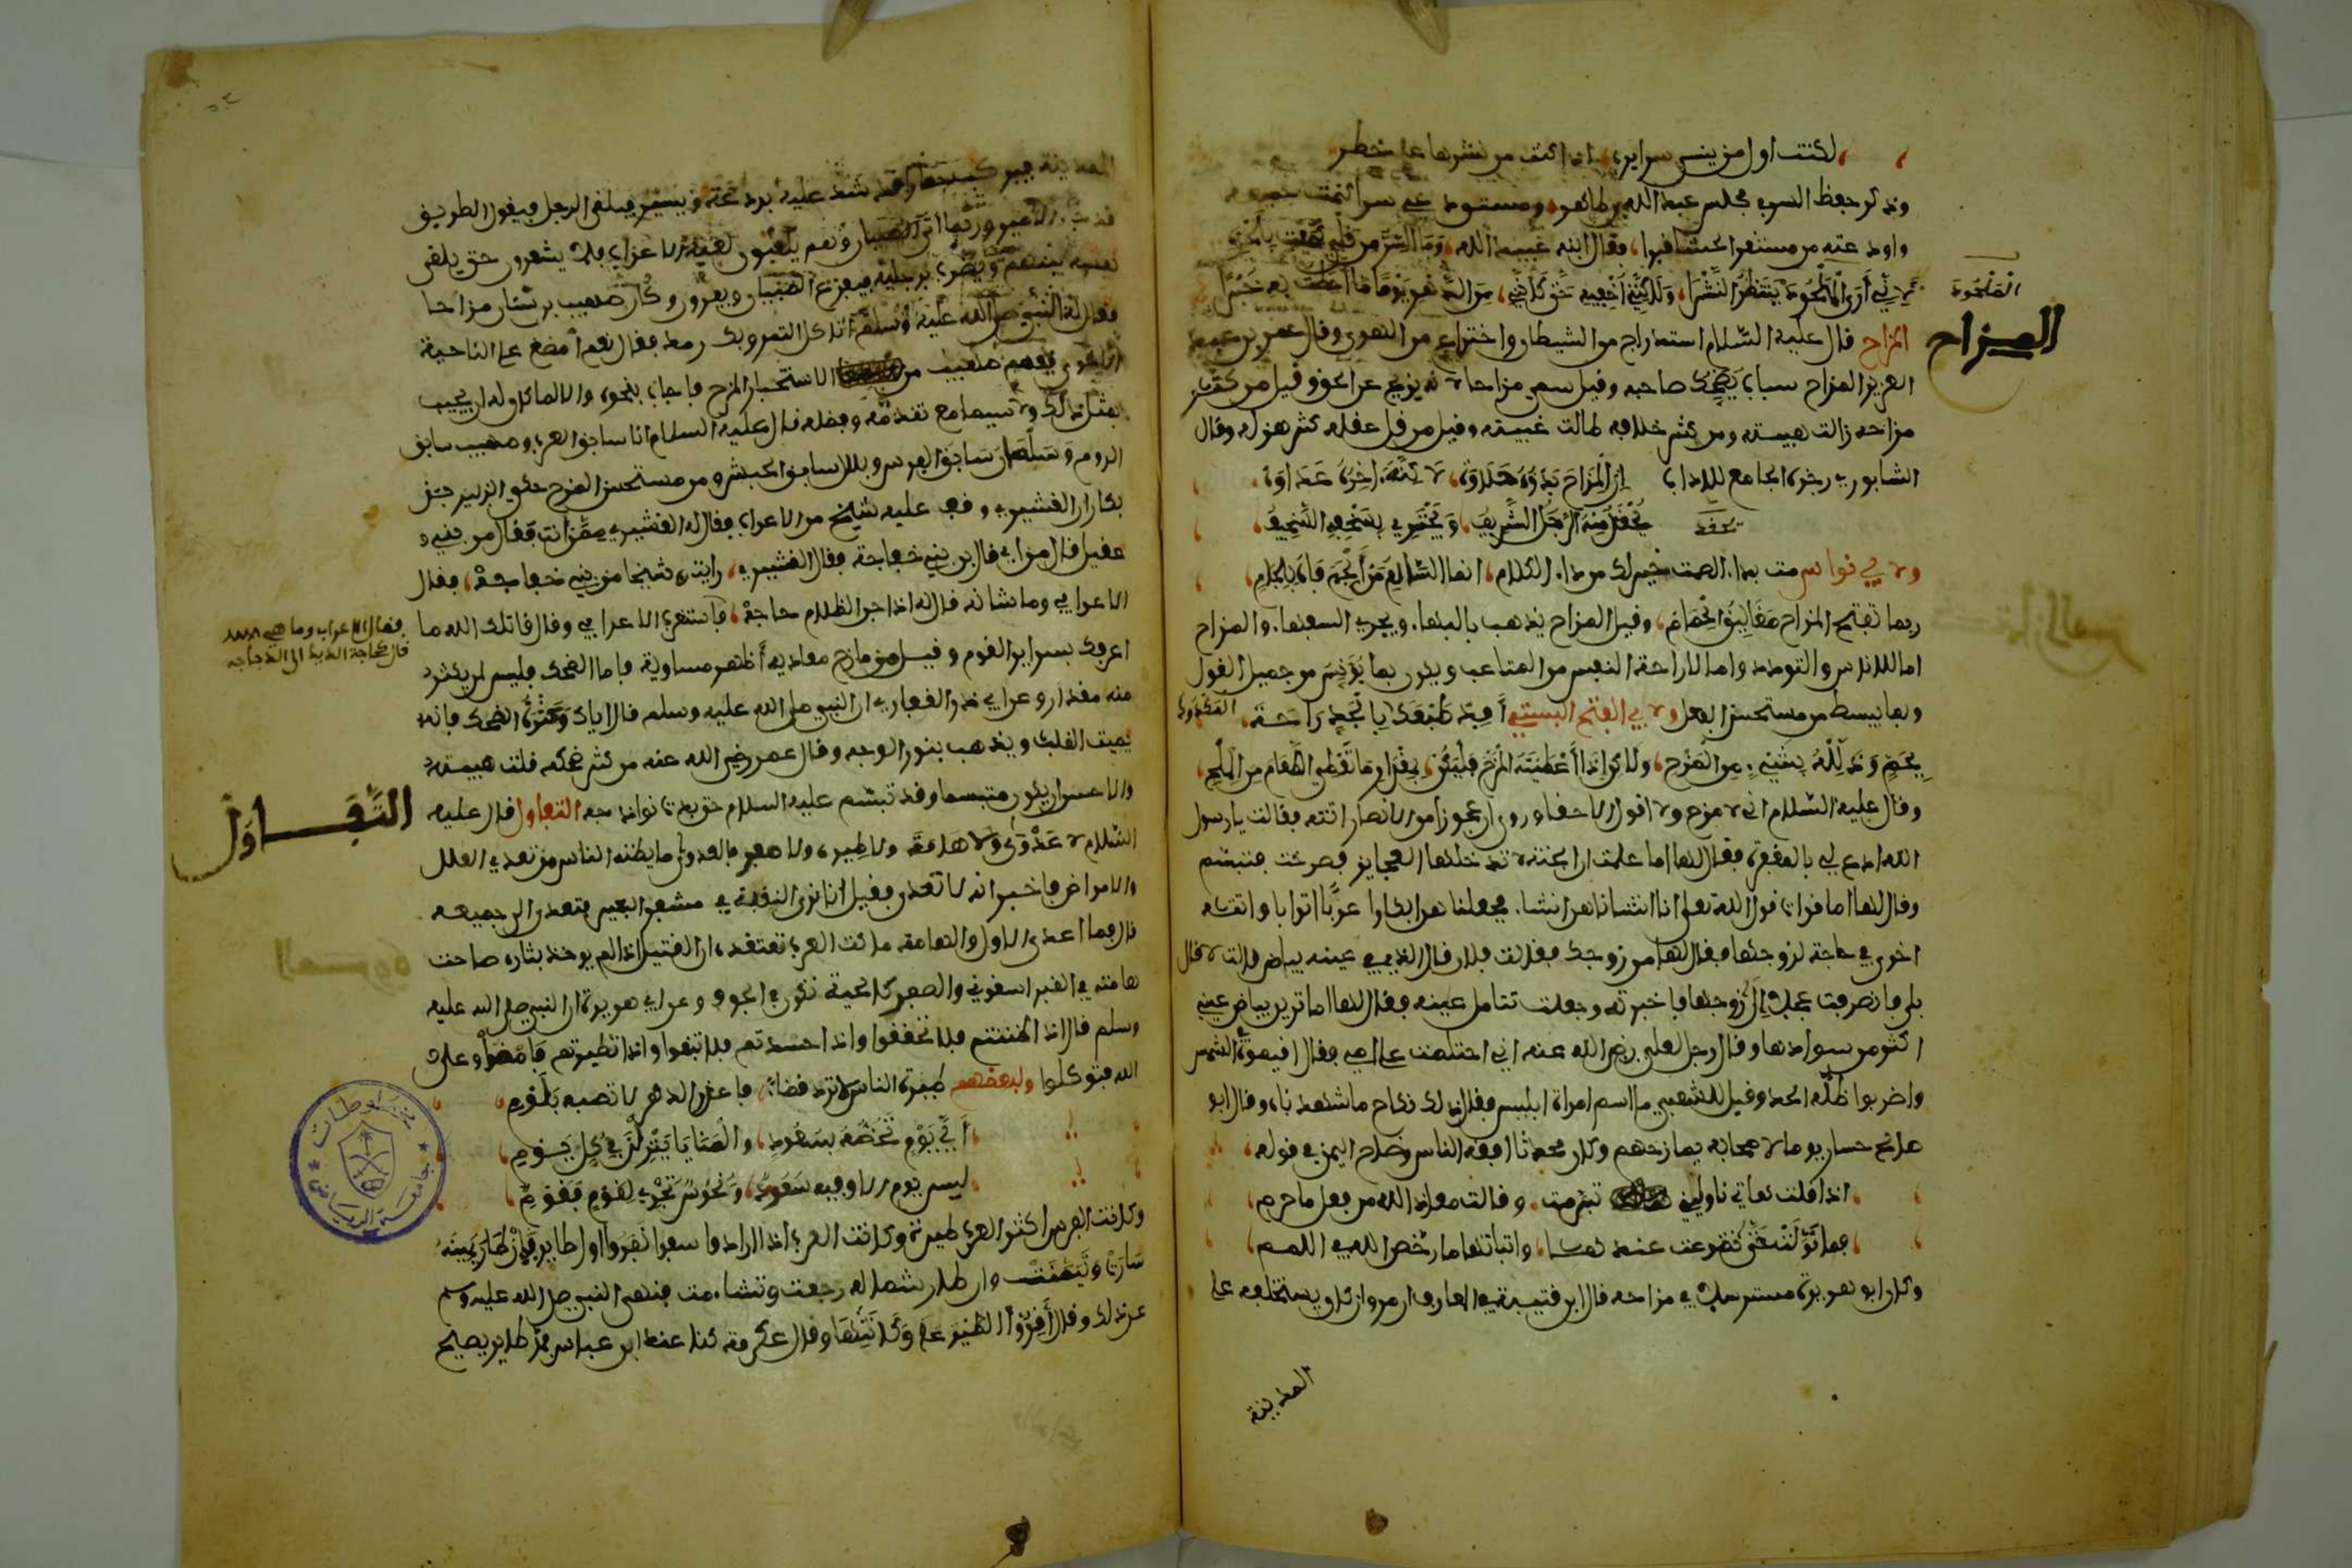 لكنت اول من ينسى سرايره اذا كنت من نشرها على خطر
وذكر حفظ السر في مجلس عبد الله بن طاهر ومستودعي سرا تضمنت سره
واودعته من مستقر الحشا قبرا فقال ابنه عبيد الله وما السر من قلبي كميت بحفرة
لاني أرى الملحود ينتظر النشرا ولكنني اخفيه حتى كأنني من الدهر يوما ما احطت به خبرا
الملحود
المزاح
المزاح قال عليه السلام استدراج من الشيطان واختراع من الهوى وقال عمر بن عبد
العزيز المزاح سباب يضحك صاحبه وقيل سمي مزاحا لانه يزيح عن الحق وقيل من كثر
مزاحه زالت هيبته ومن كثر خلافه طالت غيبته وقيل من قل عقله كثر هزله وقال
السابوري رجزه الجامع للاداب إن المزاح بدؤه حلاوه لاكنه اخره عداوه
يحقد منه الرجل الشريف ويجتري بسخفه السخيف
ولابي نواس مت بداء الصمت خير لك من داء الكلام انما السالم من ألجم فاه بلجام
ربما تفتح المزاح مغاليق الحمام وقيل المزاح يذهب بالبهاء ويجري السفهاء والمزاح
اما للاناس والتودد واما لاراحة النفس من المتاعب ويكون بما يؤنس من جميل القول
وبما يبسط من مستحسن الفعل ولابي الفتح البستي أفد طبعك المكدود بالجد راحة
يجم وعلله بشيء من المزح ولكن اذا أعطيته المزح فليكن بمقدار ما تعطي الطعام من الملح
وقال عليه السلام اني لامزح ولا اقول الا حقا وروي ان عجوزا من الانصار اتته فقالت يا رسول
الله ادع لي بالمغفرة فقال لها اما علمت ان الجنة لا تدخلها العجايز فصرخت فتبسم
وقال لها اما قرات قول الله تعلى انا انشاناهن انشاء فجعلناهن ابكارا عربا اترابا واتته
اخرى في حاجة لزوجها فقال لها من زوجك فقالت فلان قال الذي في عينه بياض قالت لا قال
بلى فانصرفت عجلى إلى زوجها فاخبرته وجعلت تتامل عينه فقال لها اما ترين بياض عيني
اكثر من سوادها وقال رجل لعلي رضي الله عنه اني احتلمت على امي فقال اقيموه في الشمس
واضربوا ظله الحد وقيل للشعبي ما اسم امراة ابليس فقال ذلك نكاح ما شهدناه وقال ابو
صالح بن حسان يوما لاصحابه يمازحهم وكان محدثا افقه الناس وضاح اليمن في قوله
اذا قلت هاتي ناوليني تبرمت وقالت معاذ الله من فعل ما حرم
فما نولت حتى تضرعت عندها وانباتها ما رخص الله في اللمم
وكان ابو هريرة مسترسلا في مزاحه قال ابن قتيبة في المعارف ان مروان كان ويستخلفه على
المدينة
المدينة فيركب حمارا قد شد عليه بردعة ويسير فيلقى الرجل فيقول الطريق
قد جاء الامير وربما اتى الصبيان وهم يلعبون لعبة الاعراب فلا يشعرون حتى يلقى
نفسه بينهم ويضرب برجليه فيفزع الصبيان ويفرون وكان صهيب بن سنان مزاحا
فقال له النبي صلى الله عليه وسلم أتاكل التمر وبك رمد فقال نعم أمضغ على الناحية
الاخرى ففهم صهيب من الاستخبار المزح فاجاب بنحوه والا لما كان له ان يجيب
بمثل ذلك ولا سيما مع تقدمه وفضله قال عليه السلام انا سابق العرب وصهيب سابق
الروم وسلمان سابق الفرس وبلال سابق الحبش ومن مستحسن المزح حكى الزبير بن
بكار ان القشيري وقف عليه شيخ من الاعراب فقال له القشيري ممن أنت فقال من بني
عقيل قال من اي قال من بني خفاجة فقال القشيري رايت شيخا من بني خفاجة فقال
الاعرابي وما شانه قال له اذا جن الظلام حاجة فاستغرب الاعرابي وقال قاتلك الله ما
فقال الاعراب وما هي
قال كحاجة الديك الى الدجاجه
اعرفك بسراير القوم وقيل من مازح معاديه أظهر مساويه فاما الضحك فليس لمن يكثر
منه مقدار وعن ابي ذر الغفاري ان النبي صلى الله عليه وسلم قال اياك وكثرة الضحك فانه
يميت القلب ويذهب بنور الوجه وقال عمر رضي الله عنه من كثر ضحكه قلت هيبته
والاحسن ان يكون متبسما وقد تبسم عليه السلام حتى بدت نواجذه التفاول قال عليه
التفاول
السلام لا عدوى ولا هامة ولا طيرة ولا صفر فالعدوى ما يظنه الناس من تعدي العلل
والامراض فاخبر انه لا تعدي فقيل انا نرى النقبة في مشفر البعير فتعدى الى جميعه
قال فما اعدى الاول والهامة ما كانت العرب تعتقده ان القتيل اذا لم يوخذ بثاره صاحت
هامته في القبر اسقوني والصفر كالحية تكون في الجوف وعن ابي هريرة ان النبي صلى الله عليه
وسلم قال اذا ظننتم فلا تحققوا واذا حسدتم فلا تبغوا واذا تطيرتم فامضوا وعلى
الله فتوكلوا ولبعضهم طيرة الناس لا ترد قضاء فاعذر الدهر لا تصبه بلوم
أي يوم تخصه بسعود والمنايا ينزلن في كل يوم
ليس يوم الا وفيه سعود ونحوس تجري لقوم فقوم
وكانت الفرس اكثر العرب طيرة وكانت العرب اذا ارادوا سفرا نفروا اول طاير فان طار يمينه
سارت وتيمنت وان طار شماله رجعت وتشاءمت فنهى النبي صلى الله عليه وسلم
عن ذلك وقال أقروا الطير على وكناتها وقال عكرمة كنا عند ابن عباس فمر طاير يصيح
مخطوطات
جامعة الرياض